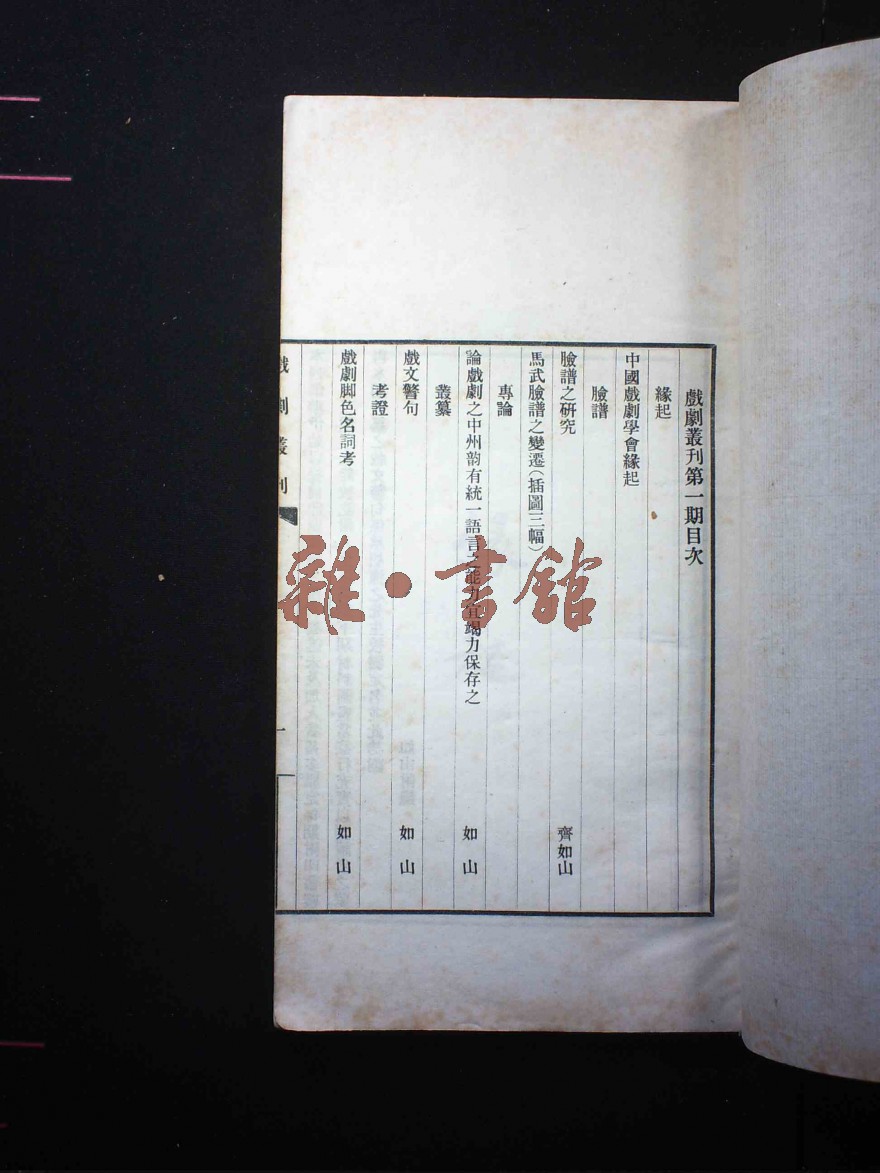 戲劇叢刊第一期目次
緣起
中國戲劇學會緣起
臉譜
臉譜之研究 齊如山
馬武臉譜之變遷（插圖三幅）
專論
論戲劇之中州韵有統一語言之能力宜竭力保存之 如山
叢纂
戲文警句 如山
考證
戲劇脚色名詞考 如山
戲劇叢刊
一
雜·書館